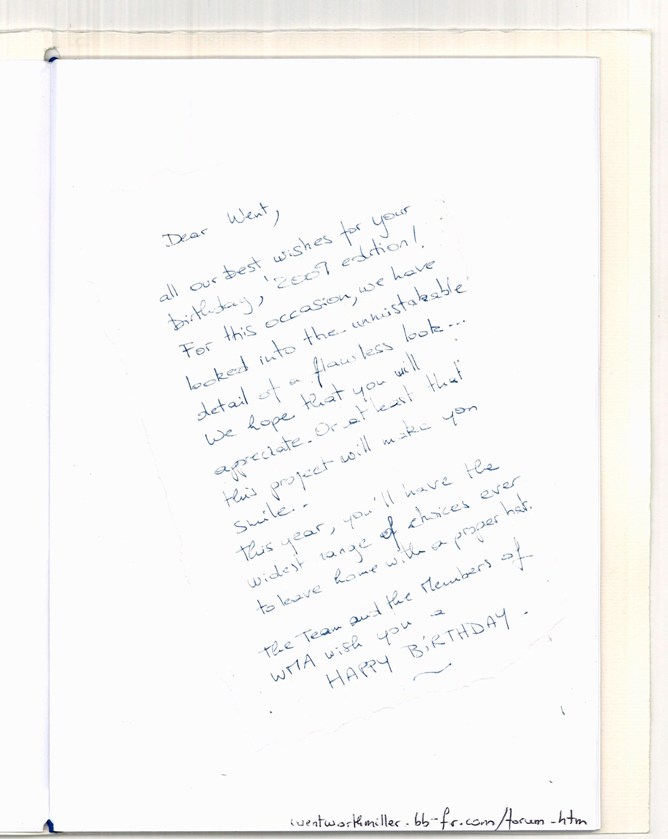 Dear Went,
all our best wishes for your
birthday, '2009 edition'!
For this occasion, we have
looked into the unmistakeable
detail of a flawless look...
We hope that you will
appreciate. Or at least that
this project will make you
smile...
This year, you'll have the
widest range of choices ever
to leave home with a proper hat.
The Team and the Members of
WMA wish you a
HAPPY BiRTHDAY.
wentworthmiller.bb-fr.com/forum.htm